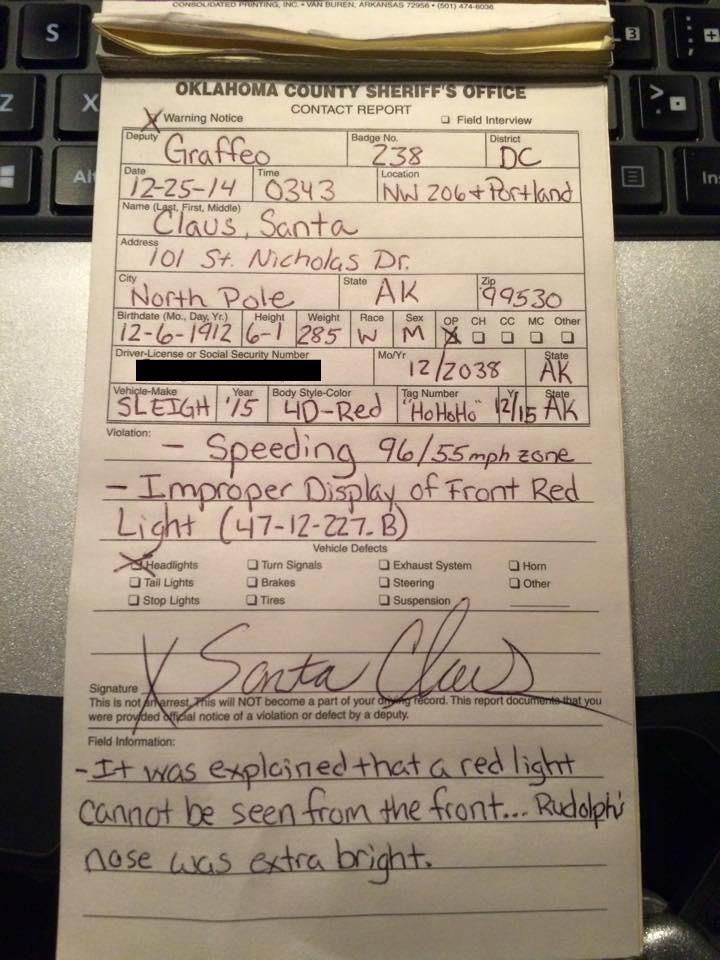 CONSOLIDATED PRINTING, INC. • VAN BUREN, ARKANSAS 72956 • (501) 474-6036
OKLAHOMA COUNTY SHERIFF'S OFFICE
CONTACT REPORT
X Warning Notice ☐ Field Interview
Deputy Graffeo Badge No. 238 District DC
Date 12-25-14 Time 0343 Location NW 206 + Portland
Name (Last, First, Middle) Claus, Santa
Address 101 St. Nicholas Dr.
City North Pole State AK Zip 99530
Birthdate (Mo., Day, Yr.) Height Weight Race Sex OP CH CC MC Other
12-6-1912 6-1 285 W M X ☐ ☐ ☐ ☐
Driver-License or Social Security Number Mo/Yr 12/2038 State AK
Vehicle-Make Year Body Style-Color Tag Number Yr State
SLEIGH '15 4D-Red "HoHoHo" 12/15 AK
Violation: - Speeding 96/55 mph zone
- Improper Display of Front Red
Light (47-12-227.B)
Vehicle Defects
X Headlights ☐ Turn Signals ☐ Exhaust System ☐ Horn
☐ Tail Lights ☐ Brakes ☐ Steering ☐ Other
☐ Stop Lights ☐ Tires ☐ Suspension
Signature X Santa Claus
This is not an arrest. This will NOT become a part of your driving record. This report documents that you
were provided official notice of a violation or defect by a deputy.
Field Information:
- It was explained that a red light
cannot be seen from the front... Rudolph's
nose was extra bright.
S
Z
X
Alt
3
Ins